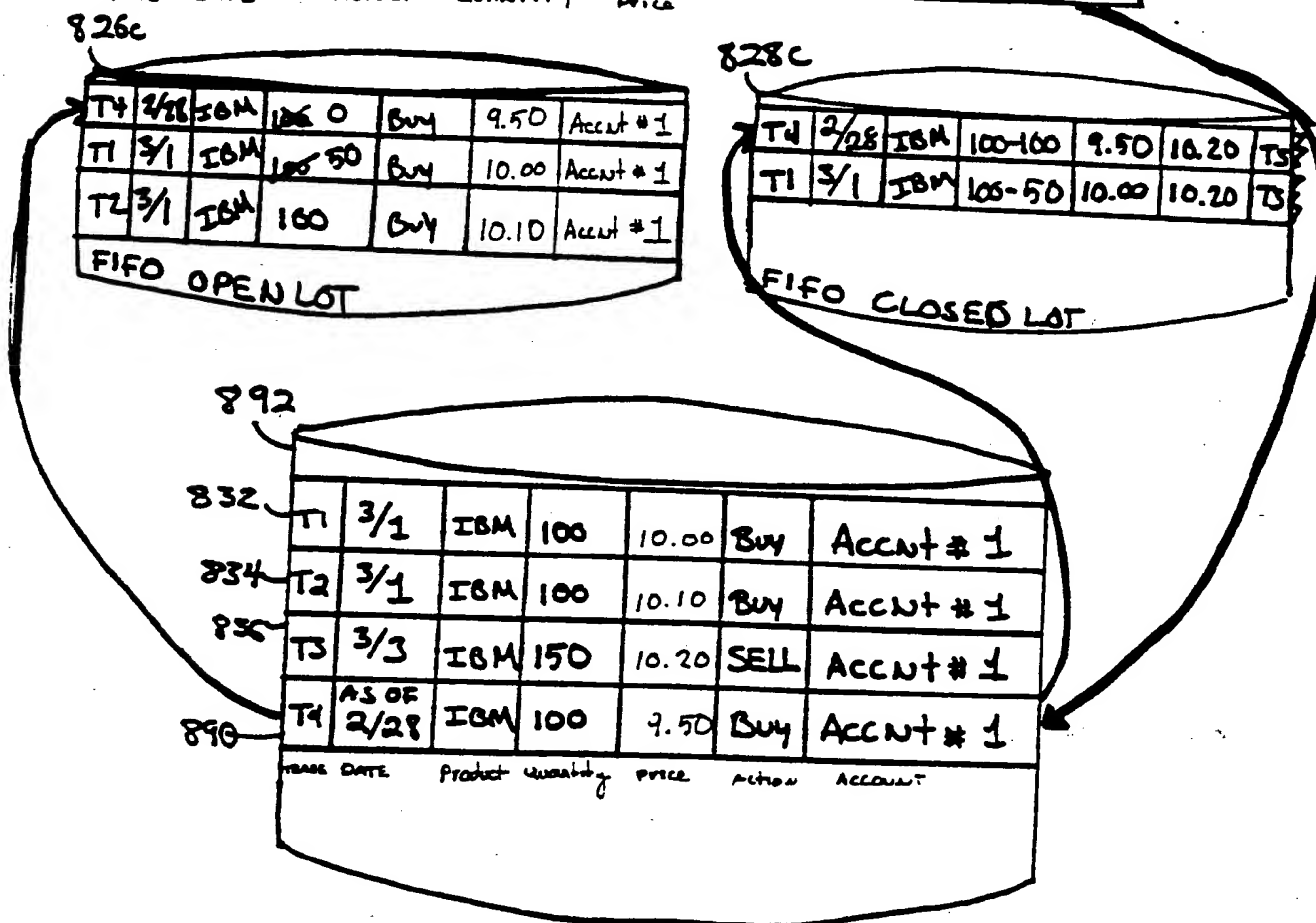 Quantity Price
826c
T4 2/28 IBM 100 0 Buy 9.50 Accnt #1
T1 3/1 IBM 100 50 Buy 10.00 Accnt #1
T2 3/1 IBM 100 Buy 10.10 Accnt #1
FIFO OPEN LOT
828c
T4 2/28 IBM 100-100 9.50 10.20 T3
T1 3/1 IBM 100-50 10.00 10.20 T3
FIFO CLOSED LOT
892
832 T1 3/1 IBM 100 10.00 Buy Accnt # 1
834 T2 3/1 IBM 100 10.10 Buy Accnt # 1
836 T3 3/3 IBM 150 10.20 SELL Accnt # 1
890 T4 AS OF 2/28 IBM 100 9.50 Buy Accnt # 1
TRADE DATE Product Quantity Price ACTION ACCOUNT